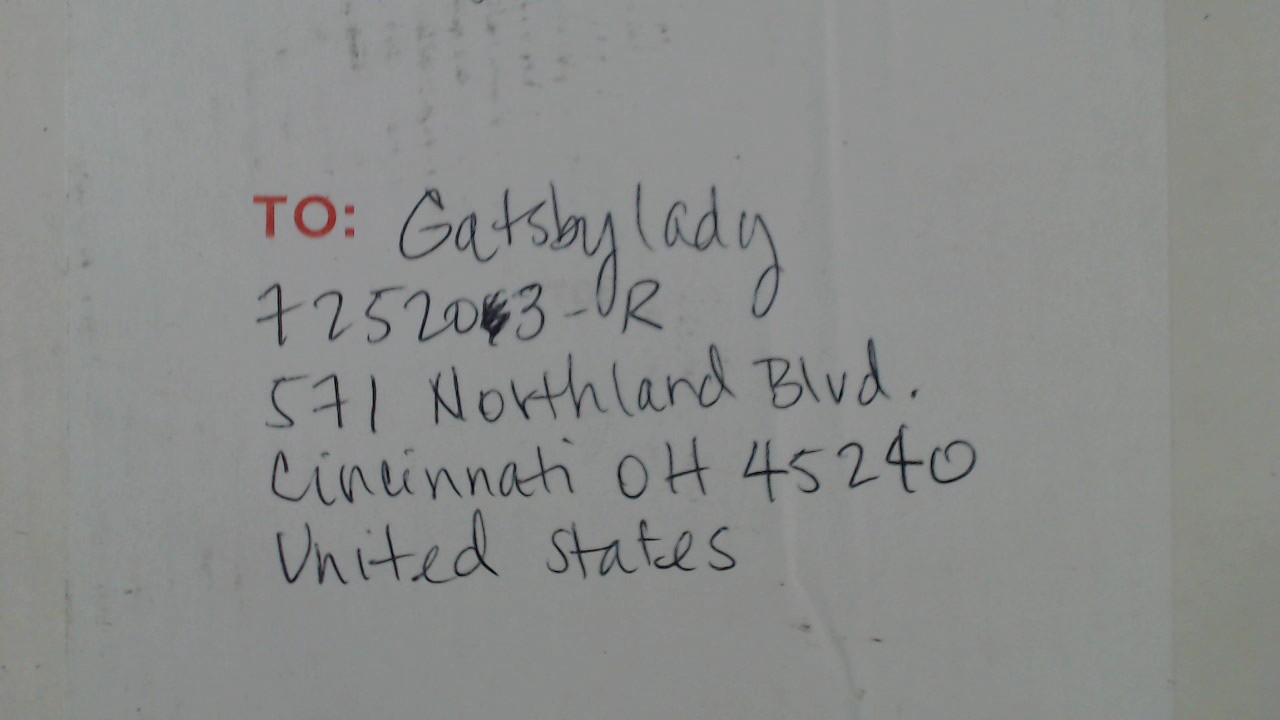 TO: Gatsbylady
725203-R
571 Northland Blvd.
Cincinnati OH 45240
United States